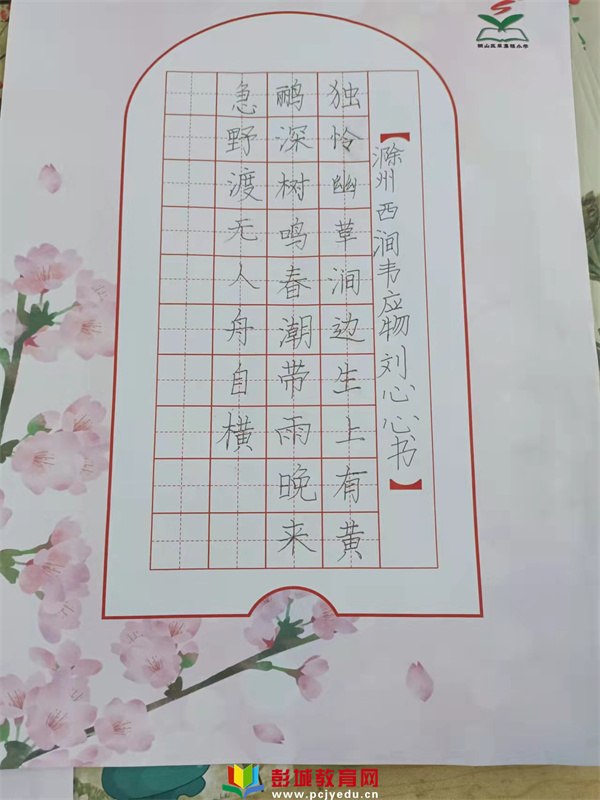 【滁州西涧韦应物刘心心书】
独怜幽草涧边生上有黄
鹂深树鸣春潮带雨晚来
急野渡无人舟自横
彭城教育网
www.pcjyedu.cn